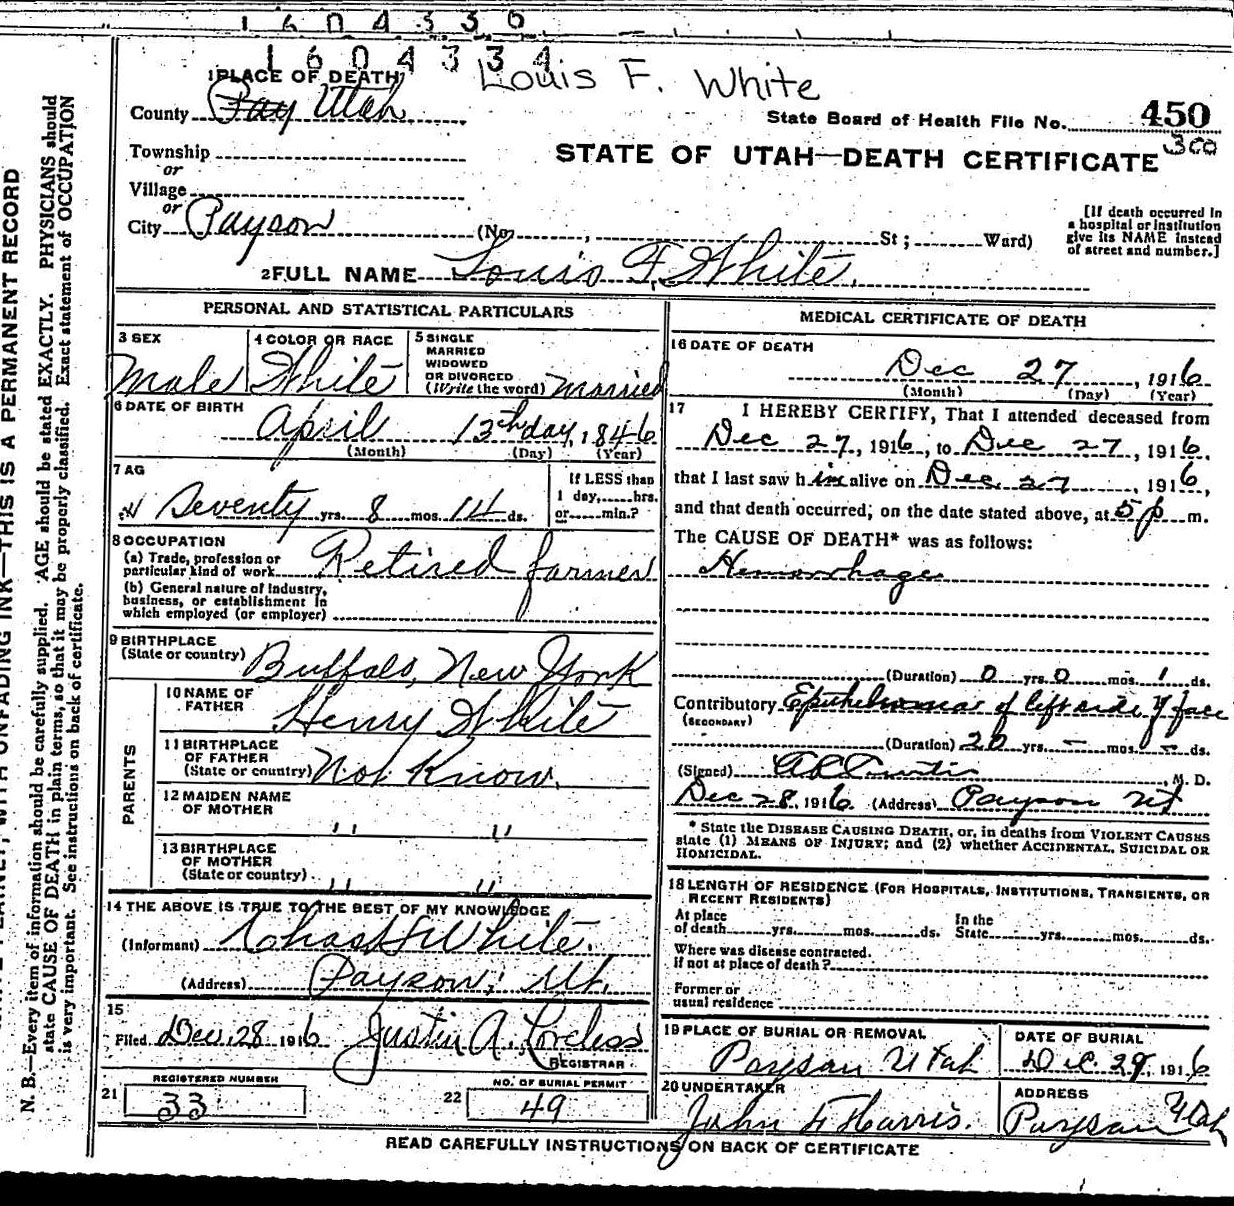 1604336
1604334
Louis F. White
1 PLACE OF DEATH
County Pay Utah
State Board of Health File No. 450
300
STATE OF UTAH—DEATH CERTIFICATE
Township
or
Village
or
City Payson (No. , St ; Ward)
[If death occurred in a hospital or institution give its NAME instead of street and number.]
2 FULL NAME Louis F. White.
PERSONAL AND STATISTICAL PARTICULARS
3 SEX Male
4 COLOR OR RACE White
5 SINGLE MARRIED WIDOWED OR DIVORCED (Write the word) Married
6 DATE OF BIRTH
April 13th day, 1846
(Month) (Day) (Year)
7 AG
Seventy yrs. 8 mos. 14 ds.
If LESS than 1 day, hrs. or min.?
8 OCCUPATION
(a) Trade, profession or particular kind of work Retired farmer
(b) General nature of industry, business, or establishment in which employed (or employer)
9 BIRTHPLACE
(State or country) Buffalo, New York
PARENTS
10 NAME OF FATHER Henry White
11 BIRTHPLACE OF FATHER (State or country) Not Know.
12 MAIDEN NAME OF MOTHER " "
13 BIRTHPLACE OF MOTHER (State or country) " "
14 THE ABOVE IS TRUE TO THE BEST OF MY KNOWLEDGE
(Informant) Chas H White.
(Address) Payson, Ut.
15
Filed Dec. 28 1916 Justin A. Loveless
REGISTRAR
REGISTERED NUMBER
21 33
NO. OF BURIAL PERMIT
22 49
MEDICAL CERTIFICATE OF DEATH
16 DATE OF DEATH
Dec 27, 1916
(Month) (Day) (Year)
17 I HEREBY CERTIFY, That I attended deceased from
Dec 27, 1916, to Dec 27, 1916,
that I last saw h im alive on Dec 27, 1916,
and that death occurred, on the date stated above, at 5 p m.
The CAUSE OF DEATH* was as follows:
Hemorrhage
(Duration) 0 yrs. 0 mos. 1 ds.
Contributory Epithelioma of left side of face
(SECONDARY)
(Duration) 20 yrs. — mos. — ds.
(Signed) Curtis, M. D.
Dec 28, 1916 (Address) Payson Ut
* State the DISEASE CAUSING DEATH, or, in deaths from VIOLENT CAUSES
state (1) MEANS OF INJURY; and (2) whether ACCIDENTAL, SUICIDAL OR
HOMICIDAL.
18 LENGTH OF RESIDENCE (FOR HOSPITALS, INSTITUTIONS, TRANSIENTS, OR
RECENT RESIDENTS)
At place of death yrs. mos. ds. In the State yrs. mos. ds.
Where was disease contracted.
if not at place of death?
Former or
usual residence
19 PLACE OF BURIAL OR REMOVAL
Payson Utah
DATE OF BURIAL
Dec. 29, 1916
20 UNDERTAKER
John F Harris.
ADDRESS
Payson Utah
READ CAREFULLY INSTRUCTIONS ON BACK OF CERTIFICATE
WITH UNFADING INK—THIS IS A PERMANENT RECORD
N. B.—Every item of information should be carefully supplied. AGE should be stated EXACTLY. PHYSICIANS should
state CAUSE OF DEATH in plain terms, so that it may be properly classified. Exact statement of OCCUPATION
is very important. See instructions on back of certificate.